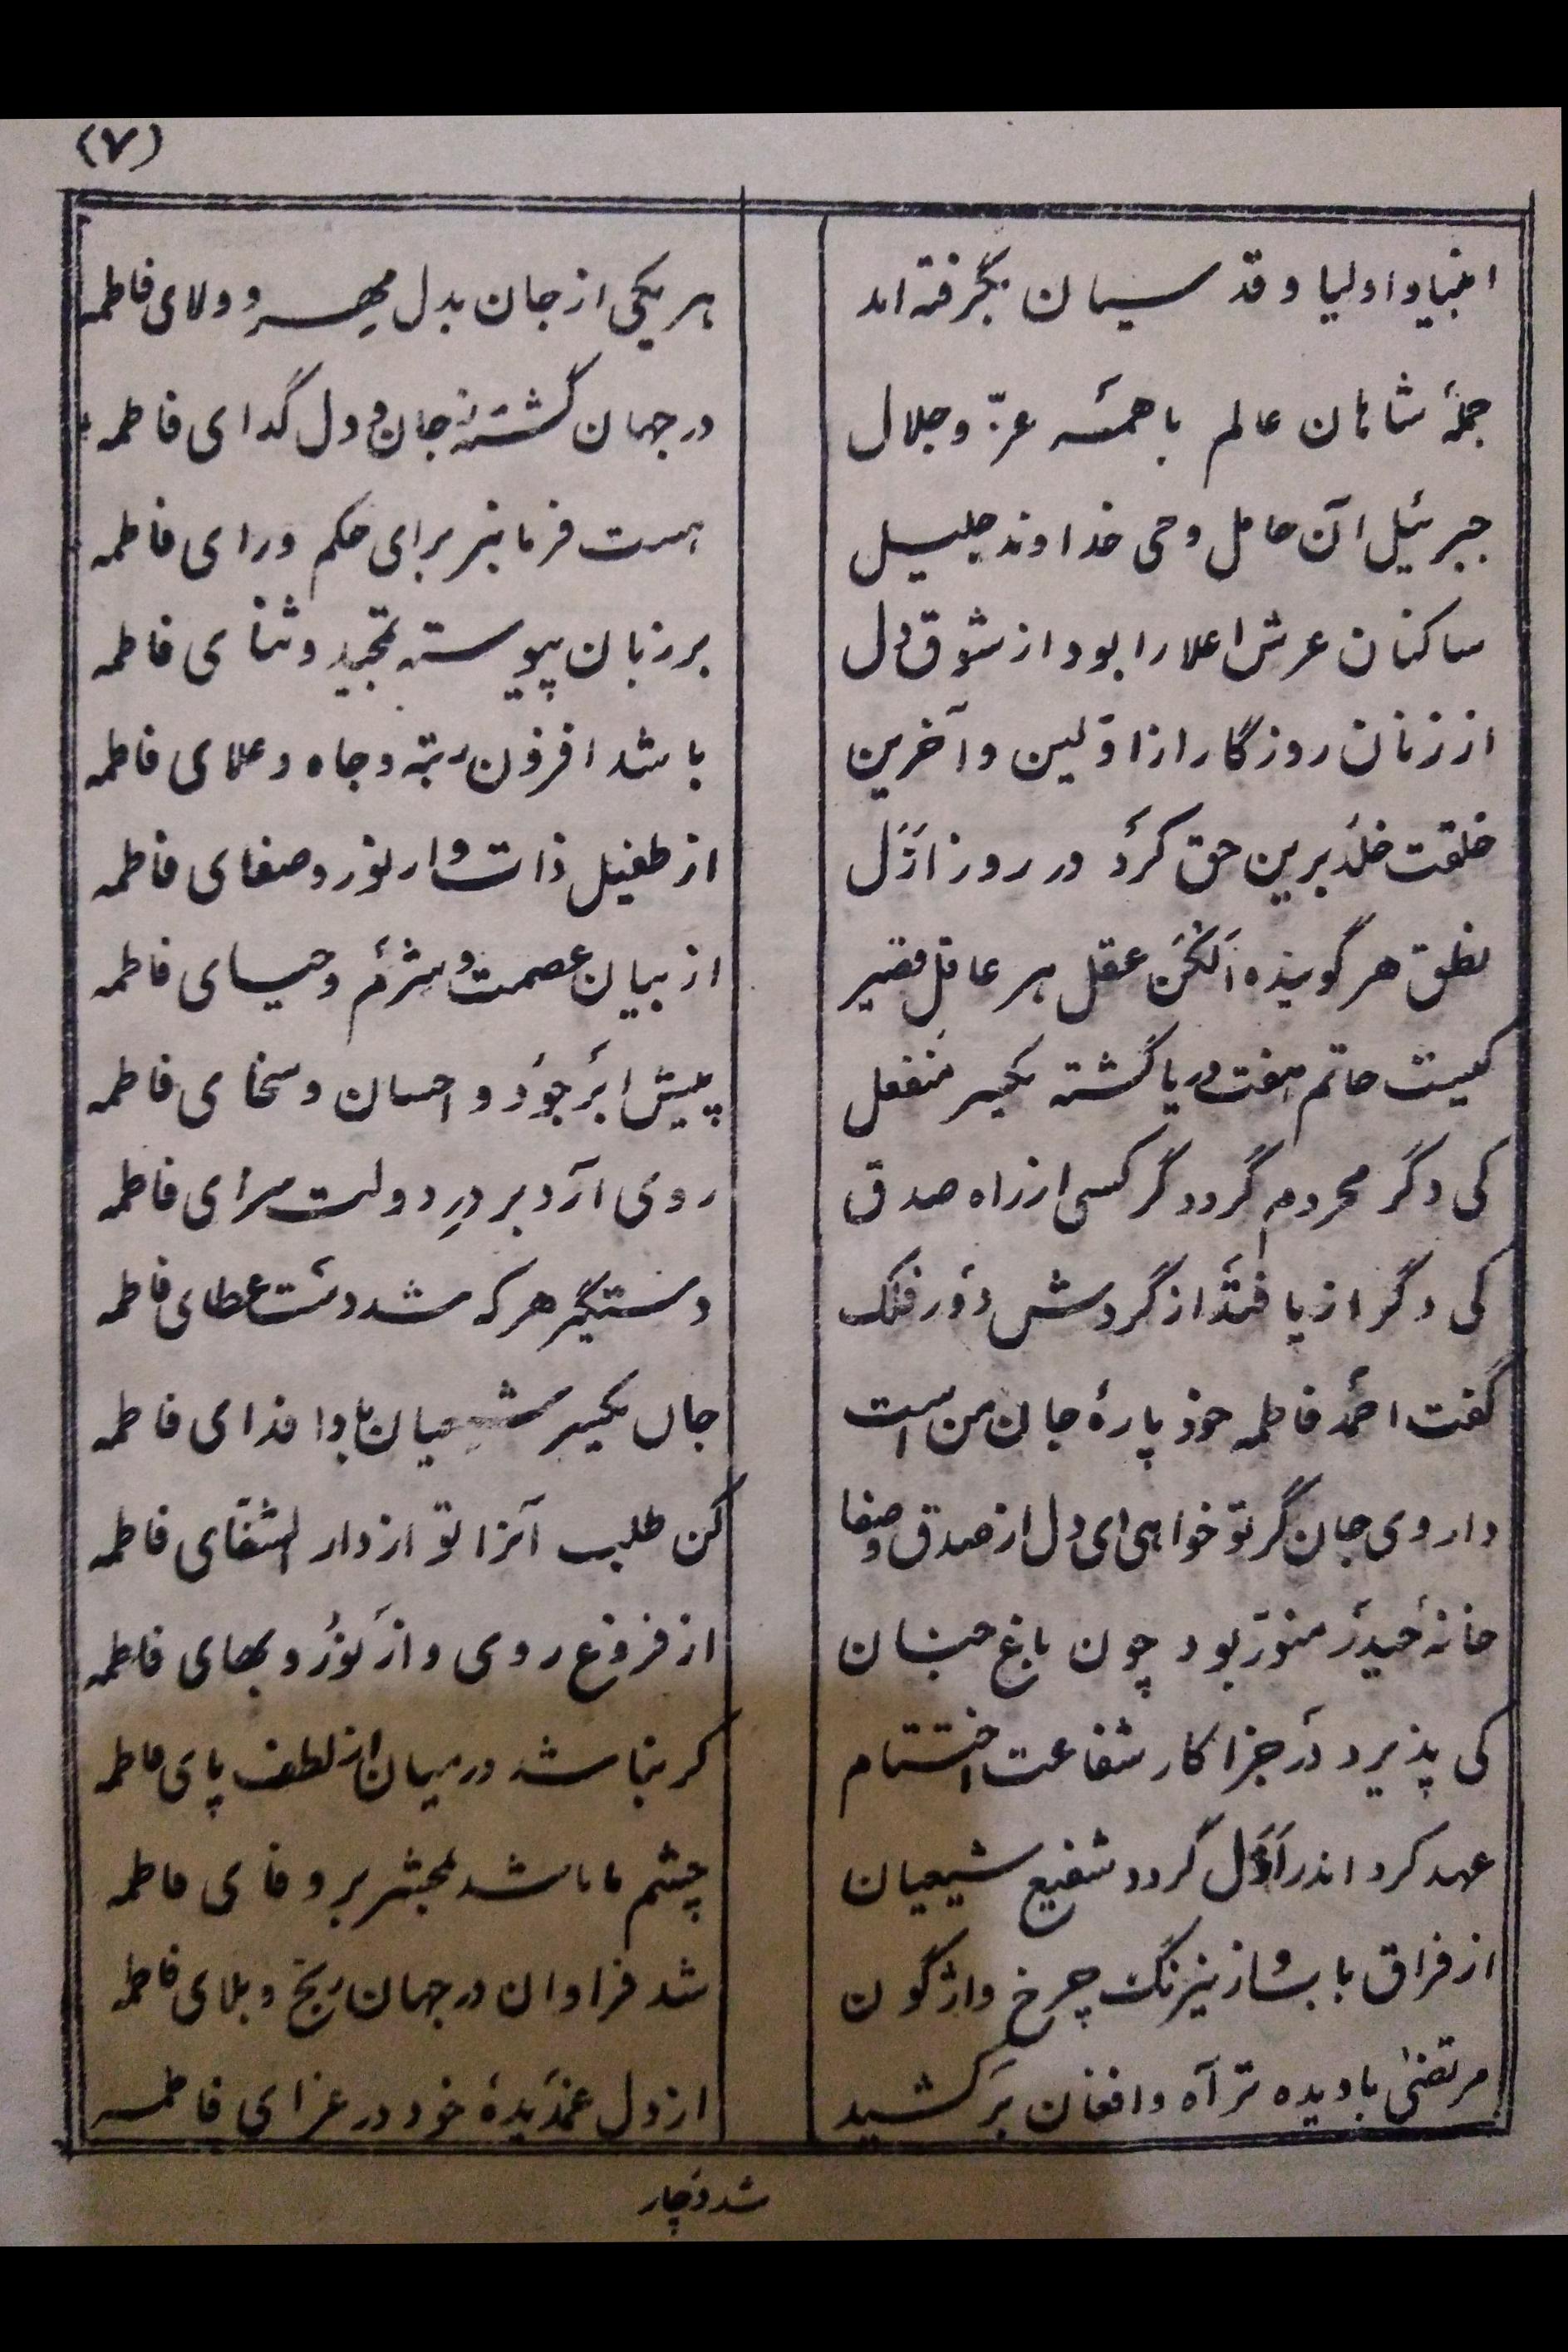 (۷)
انبیا و اولیا و قدسیان بگرفته‌اند
هر یکی از جان بدل مهر و ولای فاطمه
جملهٔ شاهان عالم با همه عزّ و جلال
در جهان گشتند از جان و دل گدای فاطمه
جبرئیل آن حامل وحی خداوند جلیل
هست فرمانبر برای حکم و رای فاطمه
ساکنان عرش اعلا را بود از شوق دل
بر زبان پیوسته تمجید و ثنای فاطمه
از زنان روزگار از اوّلین و آخرین
باشد افزون رتبه و جاه و علای فاطمه
خلقت خلد برین حق کرد در روز ازل
از طفیل ذات و انوار و صفای فاطمه
نطق هر گوینده الکن عقل هر عاقل قصیر
از بیان عصمت و شرم و حیای فاطمه
کیست حاتم هفت دریا گشته یکسر منفعل
پیش ابر جود و احسان و سخای فاطمه
کی دگر محروم گردد گر کسی از راه صدق
روی آرد بر درِ دولت سرای فاطمه
کی دگر از پا فتد از گردش دور فلک
دستگیر هر که شد دست عطای فاطمه
گفت احمد فاطمه خود پارهٔ جان من است
جان یکسر شیعیان بادا فدای فاطمه
داروی جان گر تو خواهی ای دل از صدق و صفا
کن طلب آنرا تو از دار الشفای فاطمه
خانهٔ حیدر منوّر بود چون باغ جنان
از فروغ روی و از نور و بهای فاطمه
کی پذیرد در جزا کار شفاعت اختتام
گر نباشد در میان از لطف پای فاطمه
عهد کرد اندر ازل گردد شفیع شیعیان
چشم ما باشد بمحشر بر وفای فاطمه
از فراق باب و از نیرنگ چرخ واژگون
شد فراوان در جهان رنج و بلای فاطمه
مرتضیٰ با دیده تر آه و افغان بر کشید
از دل غمدیدهٔ خود در عزای فاطمه
شد دچار